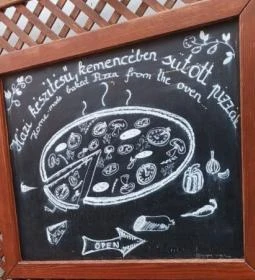 Házi készítésű, kemencében sütött pizzák
Home made baked Pizza from the oven...
OPEN